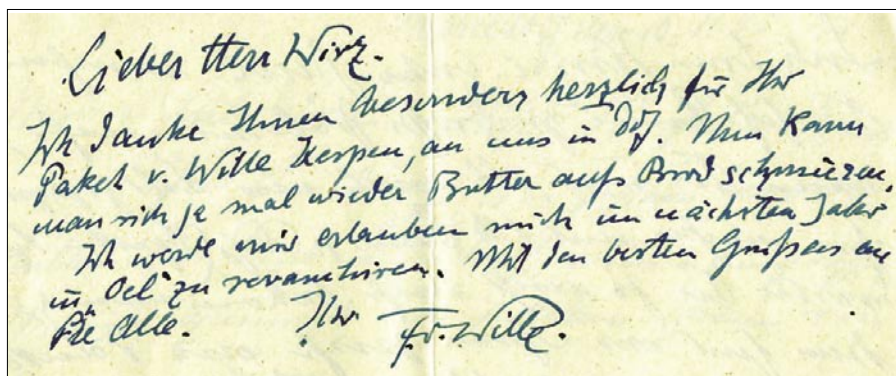 Lieber Herr Wirz.
Ich danke Ihnen besonders herzlich für Ihr
Paket v. Wille Kerpen, an uns in Ddf. Nun Kann
man sich ja mal wieder Butter aufs Brod schmieren.
Ich werde mir erlauben mich im nächsten Jahr
in „Oel" zu revanchiren. Mit den besten Grüßen an
Sie Alle. Ihr Fr. Wille.